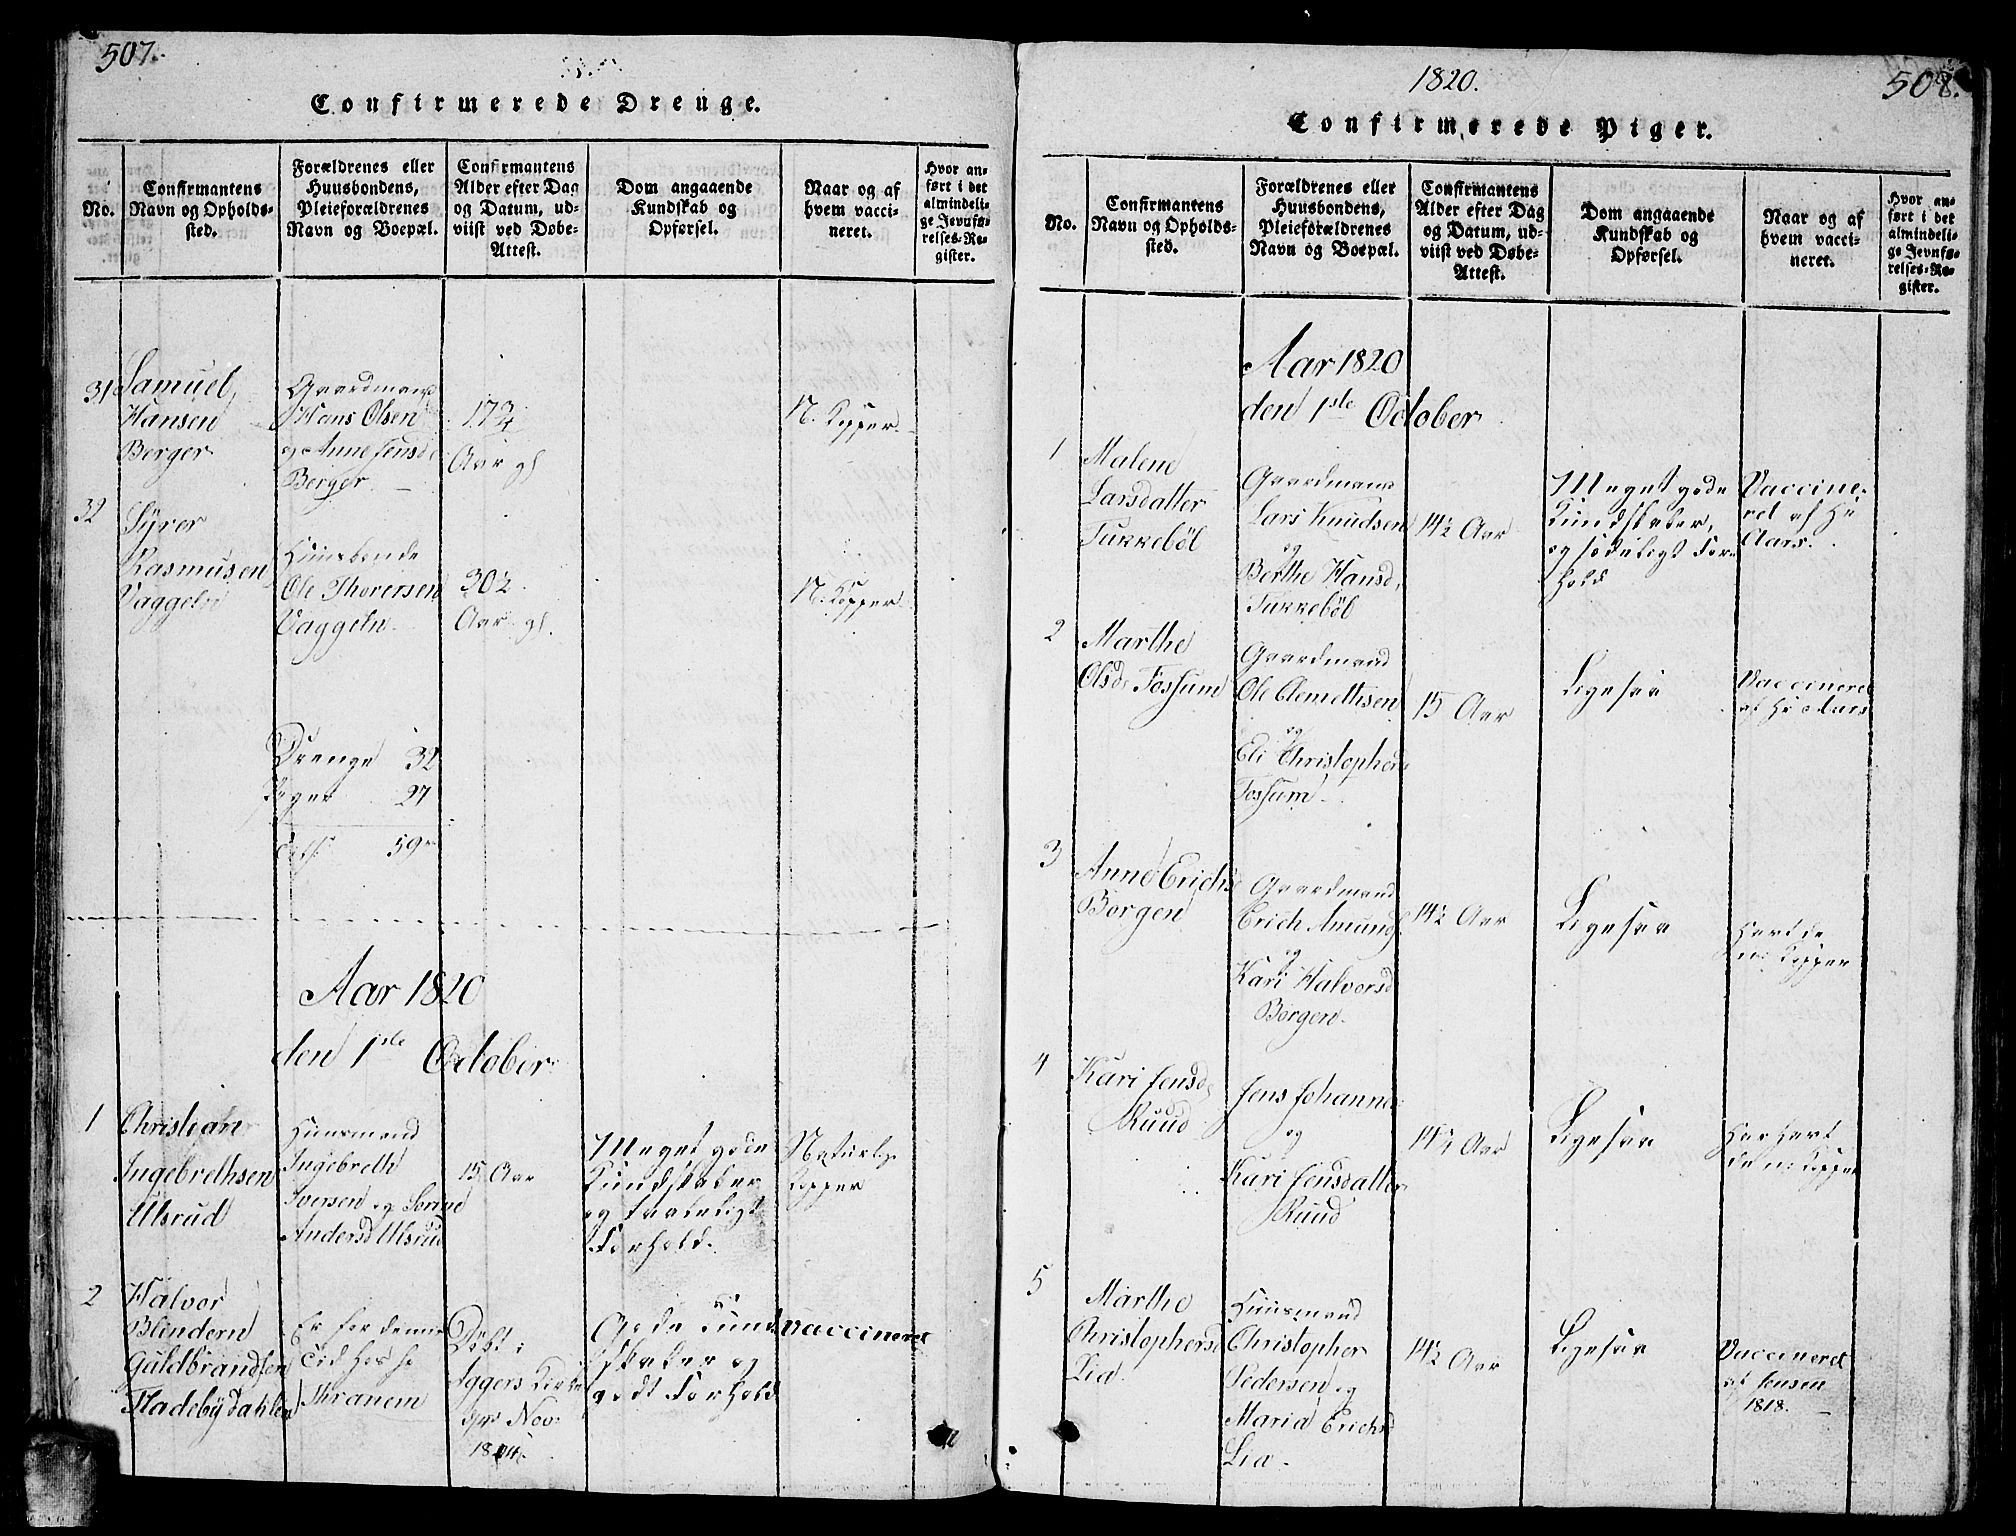 507.
Confirmerede Drenge.
No.
Confirmantens
Navn og Opholds-
sted.
Forældrenes eller
Huusbondens,
Pleieforældrenes
Navn og Boepæl.
Confirmantens
Alder efter Dag
og Datum, ud-
viist ved Døbe-
Attest.
Dom angaaende
Kundskab og
Opførsel.
Naar og af
hvem vacci-
neret.
Hvor an-
ført i det
almindeli-
ge Jevnfø-
relses-Re-
gister.
31
Samuel
Hansen
Berger
Gaardmand
Hans Olsen
og Anne Jensd:
Berger
17 3/4
Aar gl
N. Kopper
32
Syver
Rasmusen
Vaggeln
Huusbonde
Ole Thoversen
Vaggeln
30 1/2
Aar gl.
N. Kopper
Drenge 32
Piger 27
59
Aar 1820
den 1ste October
1
Christian
Ingebrethsen
Ulsrud
Huusmand
Ingebreth
Iversen og Sorine
Andersd Ulsrud
15 Aar
Meget gode
Kundskaber
og
Forhold.
Naturlige
Kopper
2
Halvor
Blindern
Guldbrandsen
Fladebydahlen
Er for denne
Tid hos
Thranem
Døbt i
Aggers Kirke
Nov:
1804
Gode Kund
skaber og
godt Forhold
Vaccineret
1820.
508.
Confirmerede Piger.
No.
Confirmantens
Navn og Opholds-
sted.
Forældrenes eller
Huusbondens,
Pleieforældrenes
Navn og Boepæl.
Confirmantens
Alder efter Dag
og Datum, ud-
viist ved Døbe-
Attest.
Dom angaaende
Kundskab og
Opførsel.
Naar og af
hvem vacci-
neret.
Hvor an-
ført i det
almindeli-
ge Jevnfø-
relses-Re-
gister.
Aar 1820
den 1ste October
1
Malene
Larsdatter
Turrebøl
Gaardmand
Lars Knudsen
og
Berthe Hansd.
Turrebøl
14 1/2 Aar
Meget gode
Kundskaber,
og sædeligt For
hold
Vaccine-
ret af Hr
Aars.
2
Marthe
Olsd: Fossum
Gaardmand
Ole Clemethsen
og
Eli Christophers
Fossum
15 Aar
Ligesaa
Vaccineret
af Hr Aars
3
Anne Erichs
Borgen
Gaardmand
Erich Amunds
og
Kari Halvorsd
Borgen
14 1/2 Aar
Ligesaa
Havt de
n: Kopper
4
Kari Jensd:
Ruud
Jens Johannes
og
Kari Jensdatter
Ruud
14 1/2 Aar
Ligesaa
Har havt
de n: Kopper
5
Marthe
Christophersd
Lia
Huusmand
Christopher
Pedersen og
Maria Erichsd
Lia
14 1/2 Aar
Ligesaa
Vaccineret
af Jensen
1818.